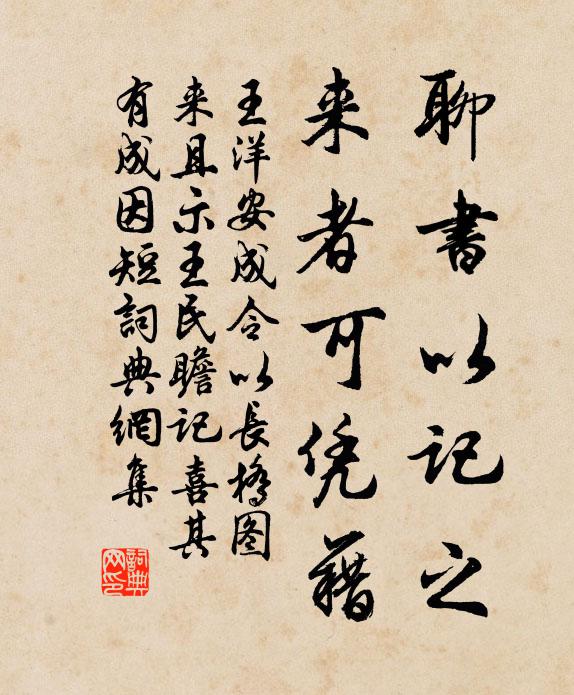 聊書以记之
来者可凭藉
王洋安成令以長橋图
来且示王民瞻记喜其
有成因短詞典網集
詞典网印